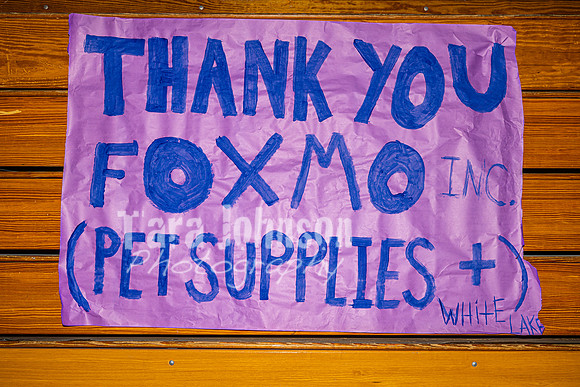 THANK YOU
FOXMO INC.
(PET SUPPLIES +)
WHITE
LAKE
Tara Johnson
Photography